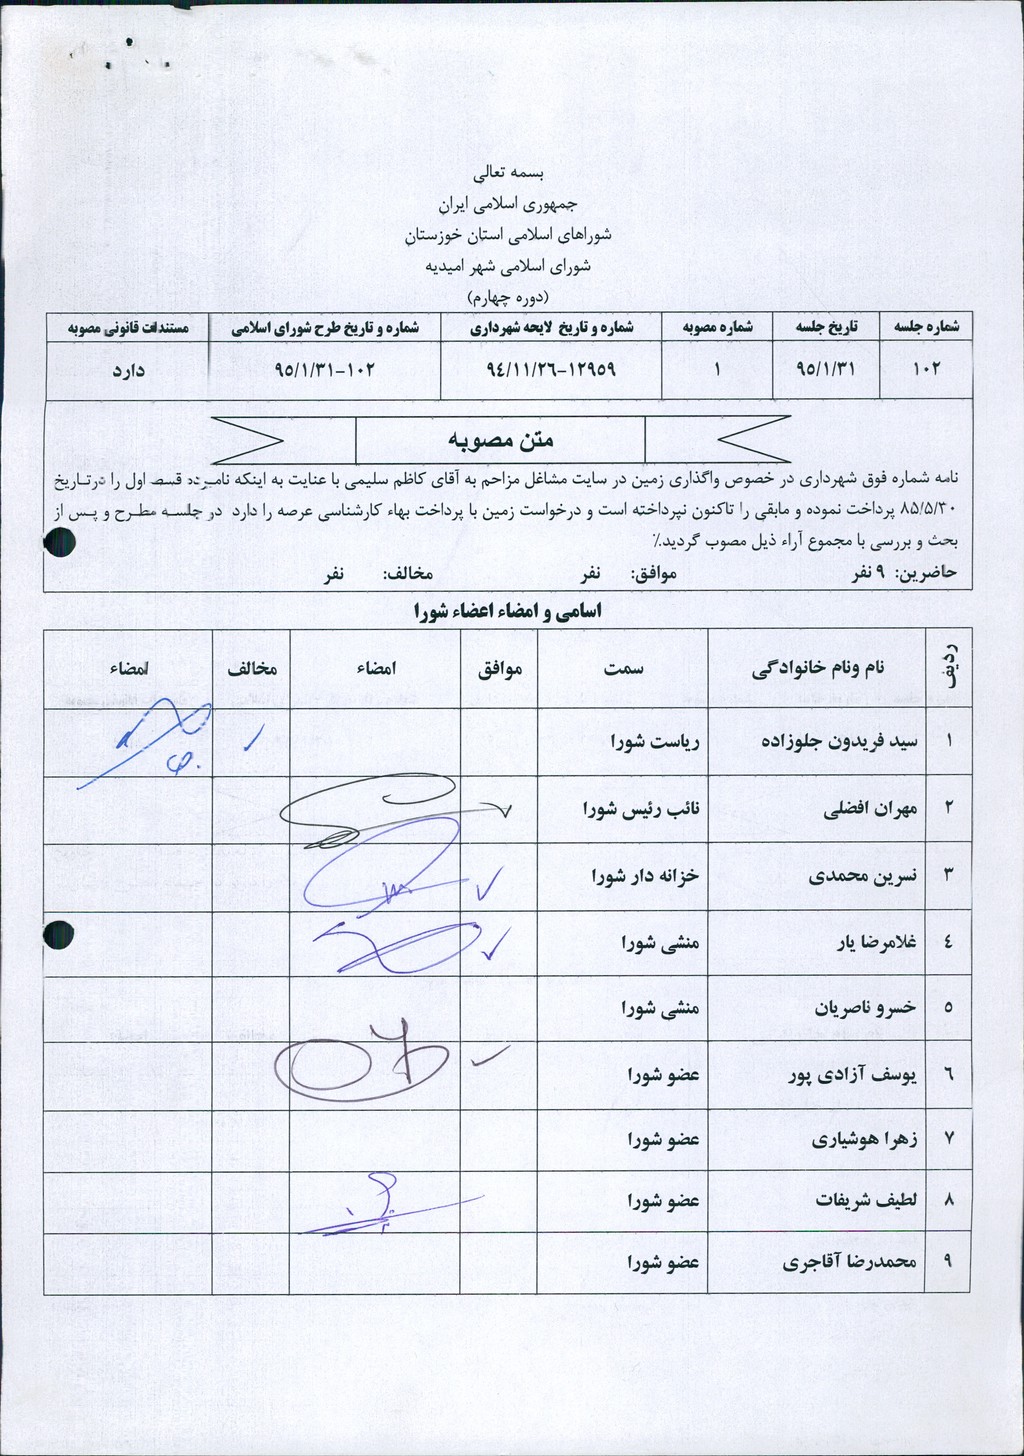 بسمه تعالی
جمهوری اسلامی ایران
شوراهای اسلامی استان خوزستان
شورای اسلامی شهر امیدیه
(دوره چهارم)
شماره جلسه تاریخ جلسه شماره مصوبه شماره و تاریخ لایحه شهرداری شماره و تاریخ طرح شورای اسلامی مستندات قانونی مصوبه
۱۰۲ ۹۵/۱/۳۱ ۱ ۹٤/۱۱/۲٦-۱۲۹۵۹ ۹۵/۱/۳۱-۱۰۲ دارد
متن مصوبه
نامه شماره فوق شهرداری در خصوص واگذاری زمین در سایت مشاغل مزاحم به آقای کاظم سلیمی با عنایت به اینکه نامبرده قسط اول را درتاریخ
۸۵/۵/۳۰ پرداخت نموده و مابقی را تاکنون نپرداخته است و درخواست زمین با پرداخت بهاء کارشناسی عرصه را دارد در جلسه مطرح و پس از
بحث و بررسی با مجموع آراء ذیل مصوب گردید.٪
حاضرین: ۹ نفر موافق: نفر مخالف: نفر
اسامی و امضاء اعضاء شورا
ردیف نام ونام خانوادگی سمت موافق امضاء مخالف امضاء
۱ سید فریدون جلوزاده ریاست شورا
۲ مهران افضلی نائب رئیس شورا
۳ نسرین محمدی خزانه دار شورا
٤ غلامرضا یار منشی شورا
۵ خسرو ناصریان منشی شورا
٦ یوسف آزادی پور عضو شورا
۷ زهرا هوشیاری عضو شورا
۸ لطیف شریفات عضو شورا
۹ محمدرضا آقاجری عضو شورا